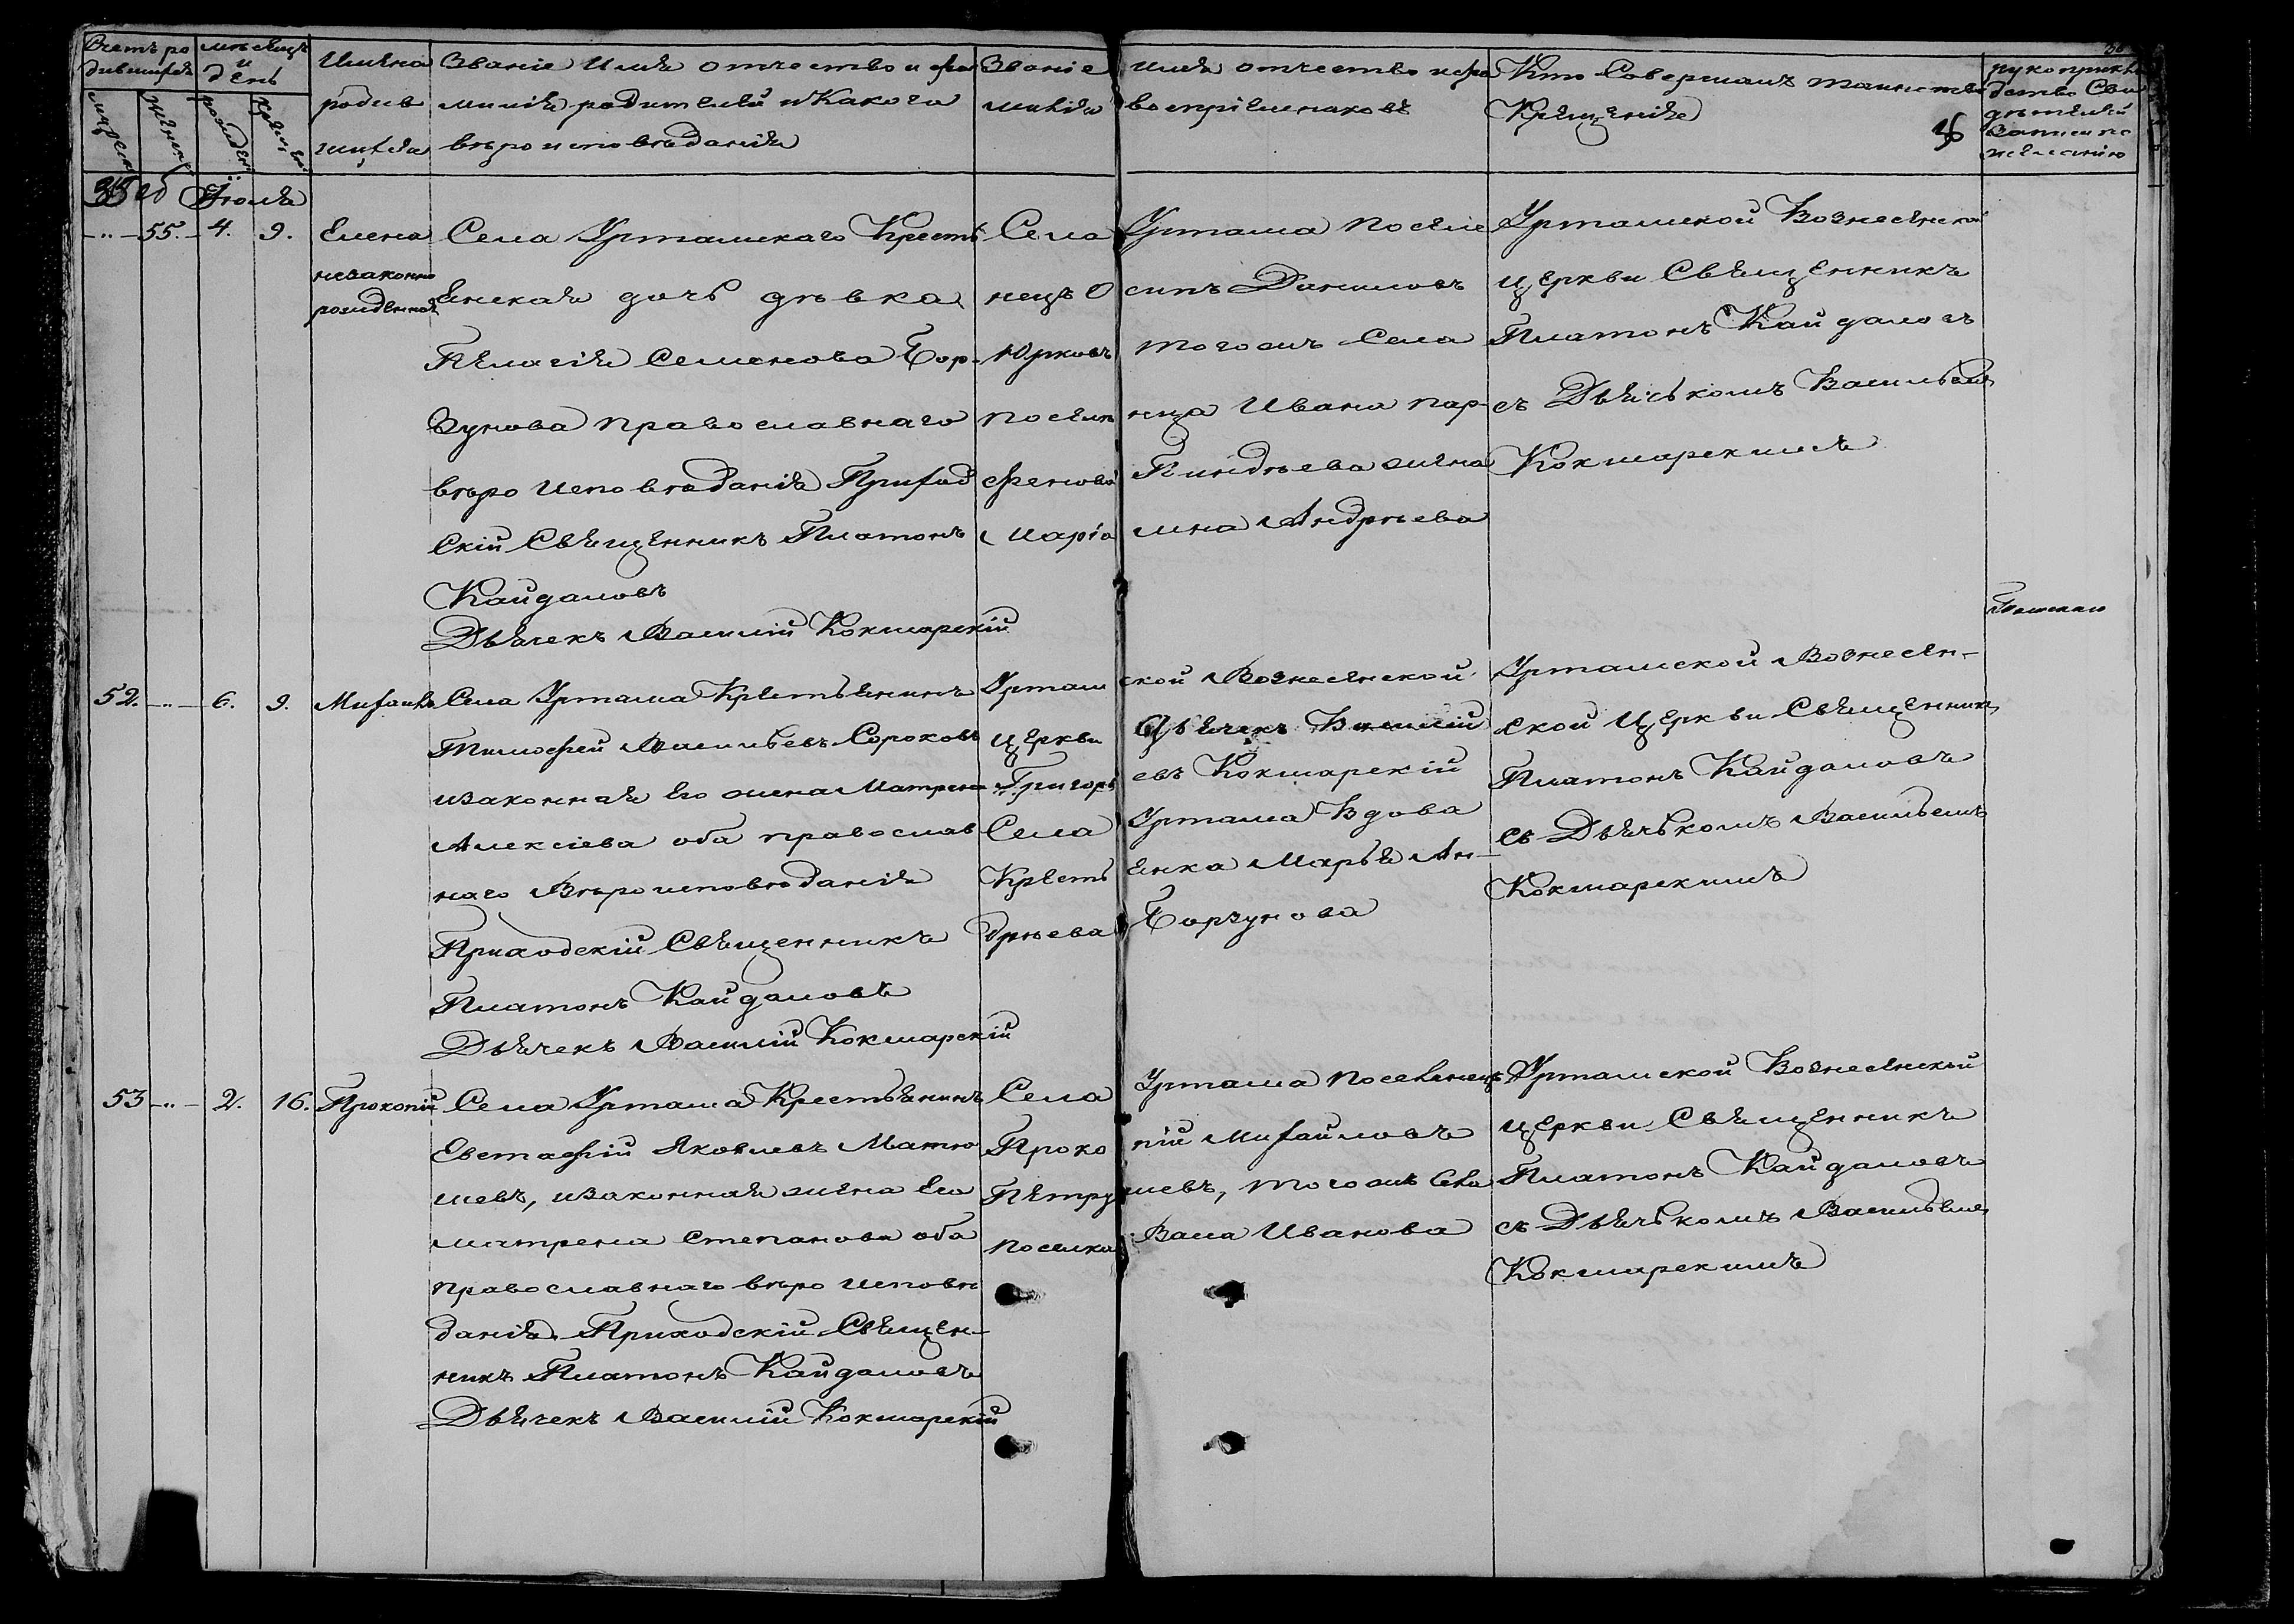 Счетъ ро
дившихся
мѣсяцъ
и
день
Имена
родив
шихся
Званіе Имя отчество и фа
милія родителей и Какого
вѣро исповѣданія
Званіе
милія
имя отчество и фа
воспріемниковъ
Кто Совершалъ таинство
Крещенія
рукоприкла
дство Сви
дѣтелей
записи по
желанію
Іюля
55. 4. 9.
Елена
незаконно
рожденная
Села Уртамскаго Кресть
янская дочь дѣвка
Пелагія Семенова Бор-
зунова православнаго
вѣро исповѣданія Приход
скій Священникъ Платонъ
Кайдаловъ
Дьячекъ Василій Кокшарскій
Села Уртама Поселе
нецъ Осипъ Даниловъ
Юрковъ тогожъ Села
поселенца Ивана пар-
фенова Киндѣева жена
Маріамна Андрѣева
Уртамской Вознесенской
церкви Священникъ
Платонъ Кайдаловъ
съ Дьячькомъ Васильемъ
Кокшарскимъ
52. 6. 9.
Михаилъ
Села Уртама Крестьянинъ
Тимофей Васильевъ Сороковъ
и законная Его жена Матрена
Алексіева оба православ
наго Вѣро исповѣданія
Приходскій Священникъ
Платонъ Кайдаловъ
Дьячекъ Василій Кокшарскій
Уртамской Вознесенской
церкви Дьячекъ Василій
Григорьевъ Кокшарскій
Села Уртама Вдова
Крестьянка Марья Ан-
дрѣева Борзунова
Уртамской Вознесен-
ской Церкви Священникъ
Платонъ Кайдаловъ
съ Дьячькомъ Васильемъ
Кокшарскимъ
53 2. 16.
Прокопій
Села Уртама Крестьянинъ
Евстафій Яковлевъ Матю
шевъ, и законная жена Его
Матрена Степанова оба
православнаго вѣро исповѣ
данія. Приходскій Священ-
никъ Платонъ Кайдаловъ
Дьячекъ Василій Кокшарскій
Села Уртама поселенецъ
Прокопій Михайловъ
Петрушевъ, тогожъ Села
поселка Иванова
Уртамской Вознесенской
церкви Священникъ
Платонъ Кайдаловъ
съ Дьячькомъ Васильемъ
Кокшарскимъ